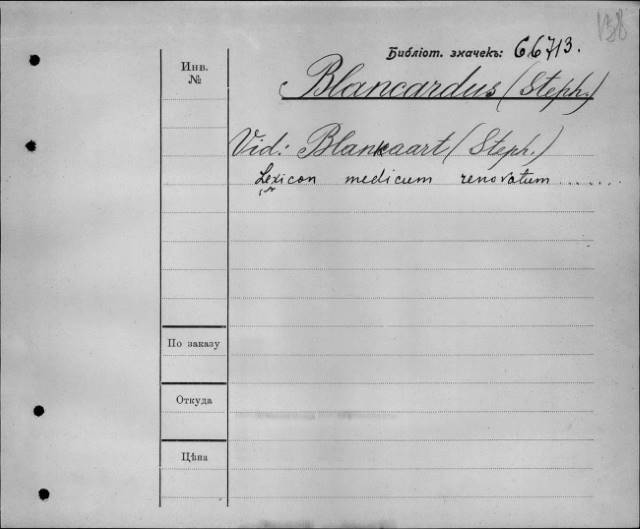 138
Библіот. значекъ: 66713.
Инв.
№
Blancardus (Steph.)
Vid: Blankaart (Steph.)
Lexicon medicum renovatum ......
По заказу
Откуда
Цѣна